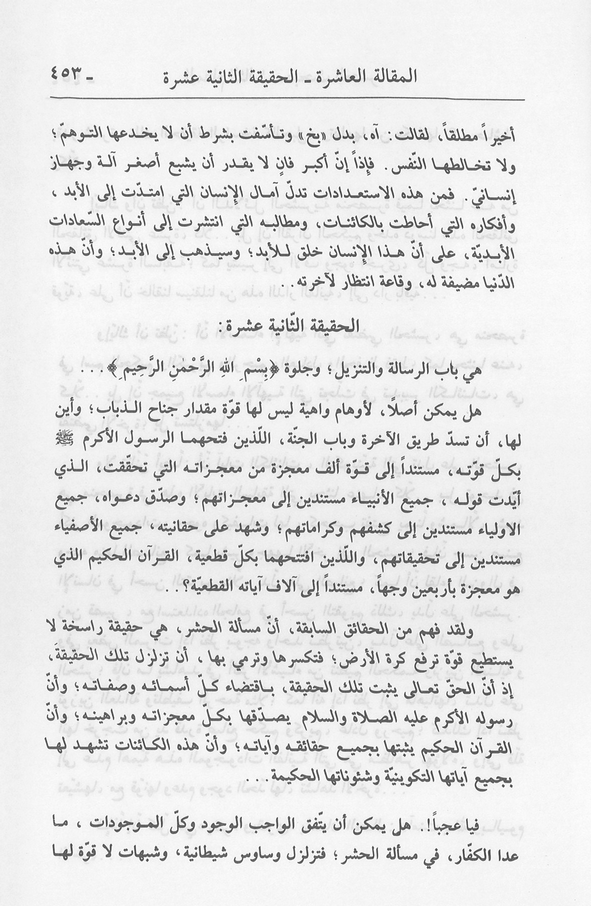 المقالة العاشرة ـ الحقيقة الثانية عشرة ـ ٤٥٣
أخيراً مطلقاً، لقالت: آه، بدل «بخ» وتأسّفت بشرط أن لا يخدعها التوهمّ؛
ولا تخالطها النّفس. فإِذاً إنّ أكبر فانٍ لا يقدر أن يشبع أصغر آلة وجهاز
إنسانيّ. فمن هذه الاستعدادات تدلّ آمال الإِنسان التي امتدّت إلى الأبد ،
وأفكاره التي أحاطت بالكائنات، ومطالبه التي انتشرت إلى أنواع السّعادات
الأبديّة، على أنّ هذا الإِنسان خلق للأبد؛ وسيذهب إلى الأبد؛ وأنّ هذه
الدّنيا مضيفة له، وقاعة انتظار لآخرته..
الحقيقة الثّانية عشرة:
هي باب الرسالة والتنزيل؛ وجلوة ﴿بِسْمِ اللهِ الرَّحْمنِ الرَّحِيمِ﴾...
هل يمكن أصلًا، لأوهام واهية ليس لها قوّة مقدار جناح الذّباب؛ وأين
لها، أن تسدّ طريق الآخرة وباب الجنّة، اللّذين فتحهما الرسول الأكرم ﷺ
بكلّ قوّته، مستنداً إلى قوّة ألف معجزة من معجزاته التي تحقّقت، الذي
أيّدت قوله ، جميع الأنبياء مستندين إلى معجزاتهم؛ وصدّق دعواه، جميع
الاولياء مستندين إلى كشفهم وكراماتهم؛ وشهد على حقانيته، جميع الأصفياء
مستندين إلى تحقيقاتهم، واللّذين افتتحهما بكلّ قطعية، القرآن الحكيم الذي
هو معجزة بأربعين وجهاً، مستنداً إلى آلاف آياته القطعيّة؟..
ولقد فهم من الحقائق السابقة، أنّ مسألة الحشر، هي حقيقة راسخة لا
يستطيع قوّة ترفع كرة الأرض؛ فتكسرها وترمي بها ، أن تزلزل تلك الحقيقةَ،
إذ أنّ الحقّ تعالى يثبت تلك الحقيقة، باقتضاء كلّ أسمائه وصفاته؛ وأنّ
رسوله الأكرم عليه الصلاة والسلام يصدّقها بكلّ معجزاته وبراهينه؛ وأنّ
القرآن الحكيم يثبتها بجميع حقائقه وآياته؛ وأنّ هذه الكائنات تشهد لها
بجميع آياتها التكوينيّة وشئوناتها الحكيمة...
فيا عجباً!. هل يمكن أن يتّفق الواجب الوجود وكلّ الموجودات ، ما
عدا الكفّار، في مسألة الحشر؛ فتزلزل وساوس شيطانية، وشبهات لا قوّة لها